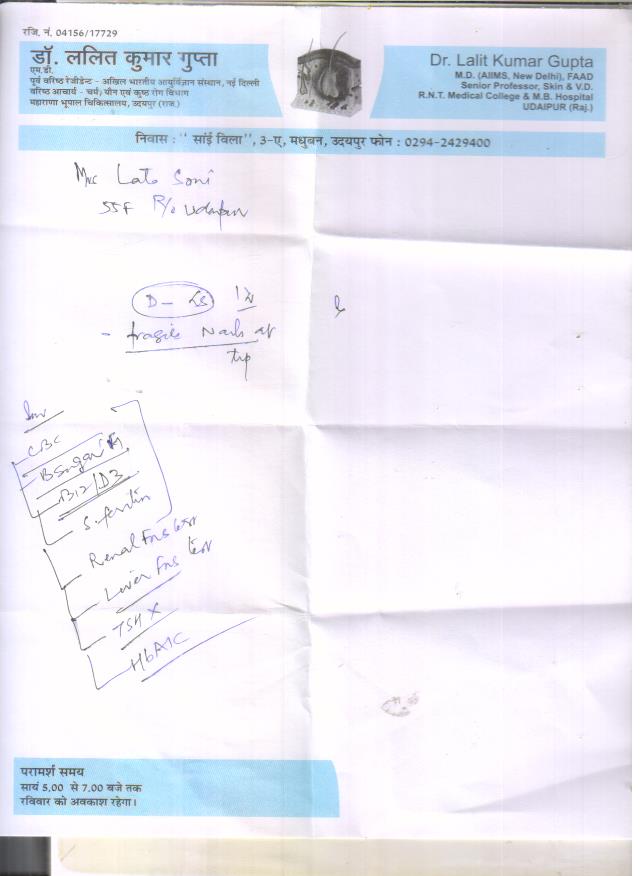 रजि. नं. 04156/17729
डॉ. ललित कुमार गुप्ता
एम.डी.
पूर्व वरिष्ठ रेजीडेन्ट - अखिल भारतीय आयुर्विज्ञान संस्थान, नई दिल्ली
वरिष्ठ आचार्य - चर्म, यौन एवं कुष्ठ रोग विभाग
महाराणा भूपाल चिकित्सालय, उदयपुर (राज.)
Dr. Lalit Kumar Gupta
M.D. (AIIMS, New Delhi), FAAD
Senior Professor, Skin & V.D.
R.N.T. Medical College & M.B. Hospital
UDAIPUR (Raj.)
निवास : " सांई विला", 3-ए, मधुबन, उदयपुर फोन : 0294-2429400
Mrs Lata Soni
55F R/o Udaipur
D-
- fragile Nails at
tip
Inv
CBC
B Sugar
B12/D3
S. ferritin
Renal Fns test
Liver Fns test
TSH
HbA1C
परामर्श समय
सायं 5.00 से 7.00 बजे तक
रविवार को अवकाश रहेगा।